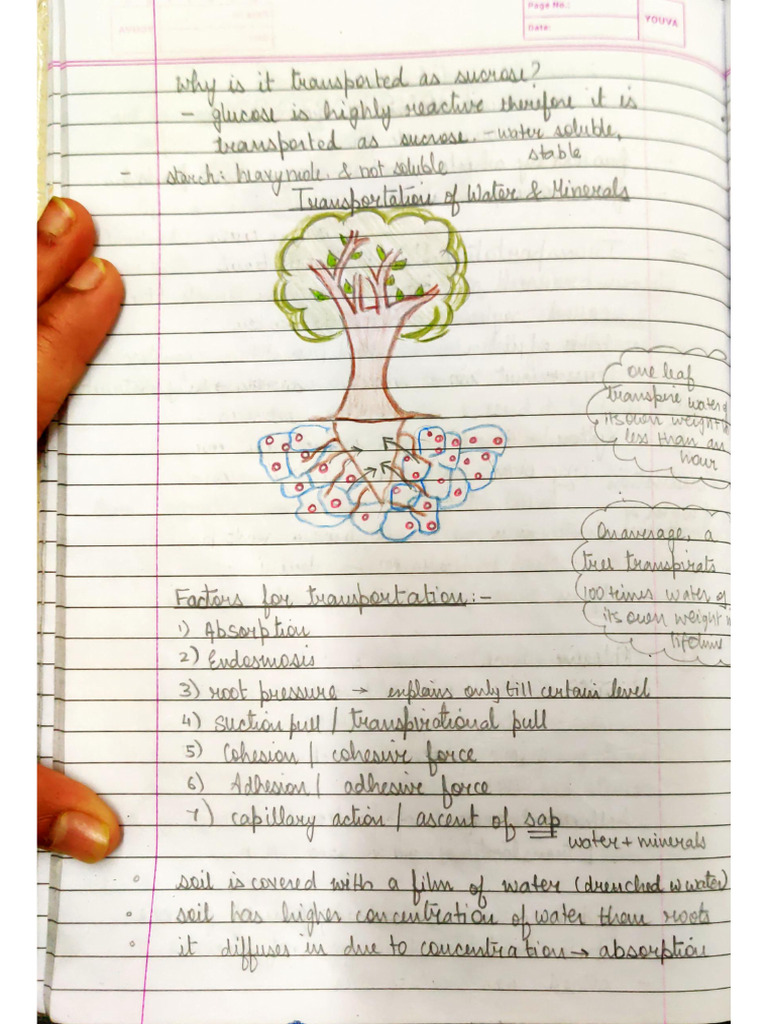 Page No.:
Date:
YOUVA
Why is it transported as sucrose?
- glucose is highly reactive therefore it is
transported as sucrose. - water soluble,
stable
- starch: heavy mole. & not soluble
Transportation of Water & Minerals
one leaf
transpire water of
its own weight in
less than an
hour
On average, a
tree transpirats
100 times water of
its own weight in
lifetime
Factors for transportation:-
1) Absorption
2) Endosmosis
3) root pressure → explains only till certain level
4) Suction pull / transpirational pull
5) Cohesion / cohesive force
6) Adhesion / adhesive force
7) capillary action / ascent of sap
water + minerals
° soil is covered with a film of water (drenched w water)
° soil has higher concentration of water than roots
° it diffuses in due to concentration → absorption